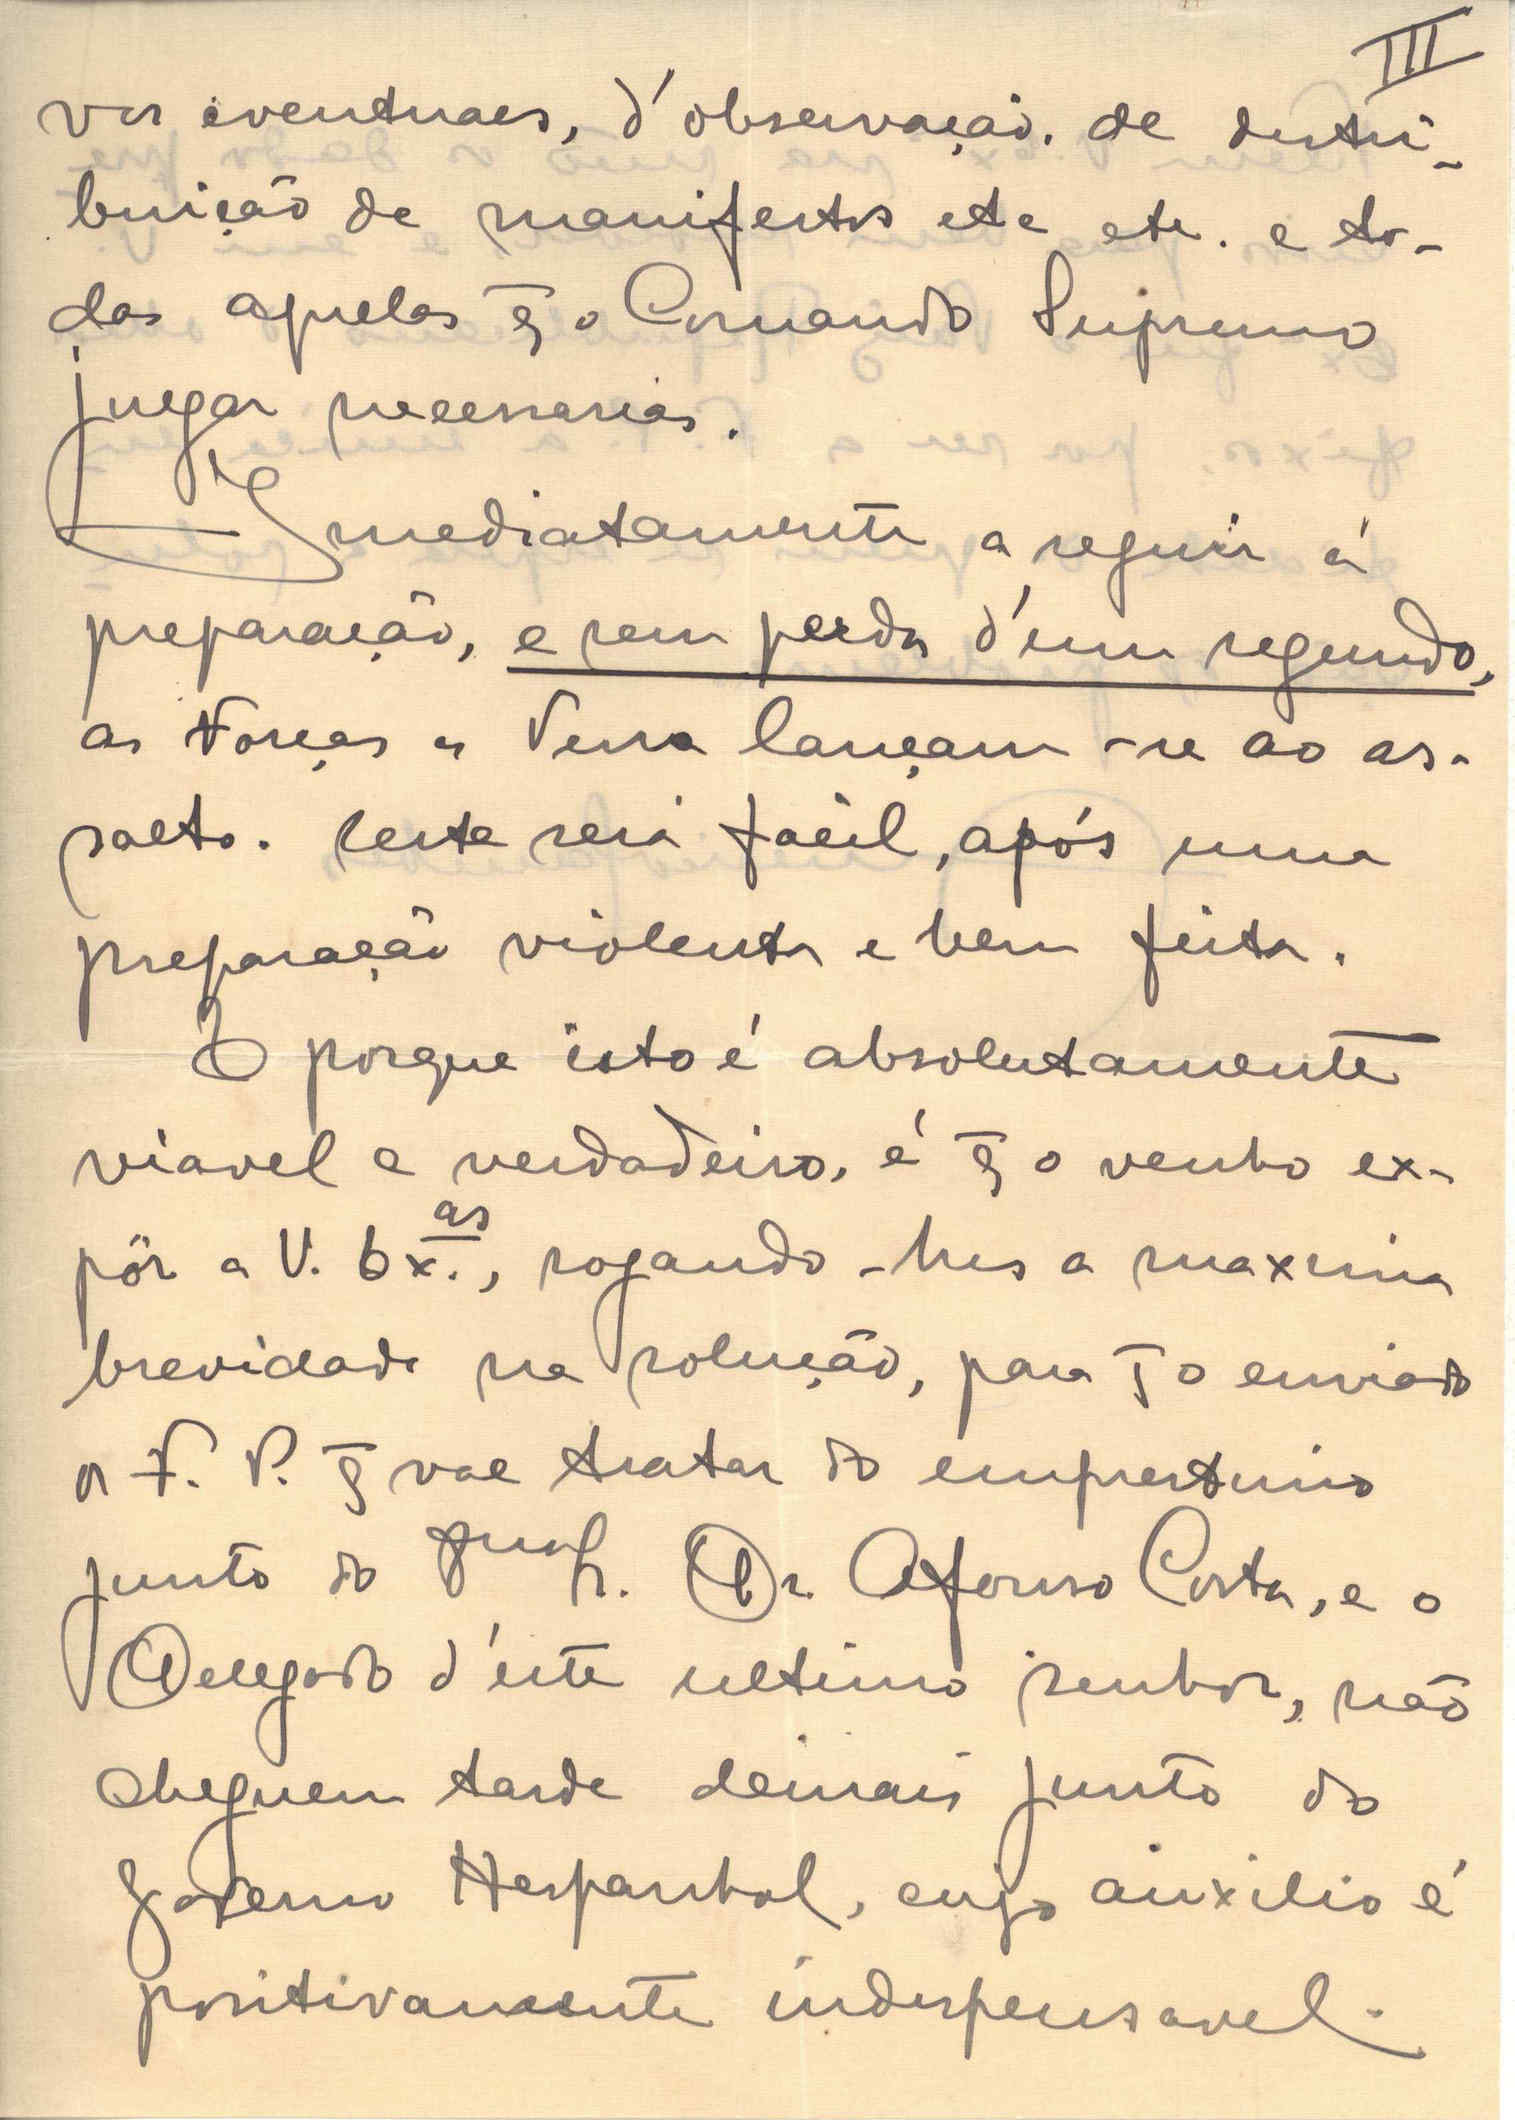 III
vos eventuaes, d'observação, de distri-
buição de manifestos etc etc. e to-
das aquelas q̄ o Comando Supremo
julgar necessarias.
Imediatamente a seguir á
preparação, e sem perda d'um segundo,
as Forças de Terra lançam-se ao as-
salto. Este será facil, após uma
preparação violenta e bem feita.
E porque isto é absolutamente
viavel e verdadeiro, é q̄ o venho ex-
pôr a V. Ex.as, rogando-lhes a maxima
brevidade na solução, para q̄ o enviado
a F. P. q̄ vae tratar do emprestimo
junto do Prof. Dr. Afonso Costa, e o
Delegado d'este ultimo senhor, não
cheguem tarde demais junto do
Governo Hespanhol, cujo auxilio é
positivamente indispensavel.